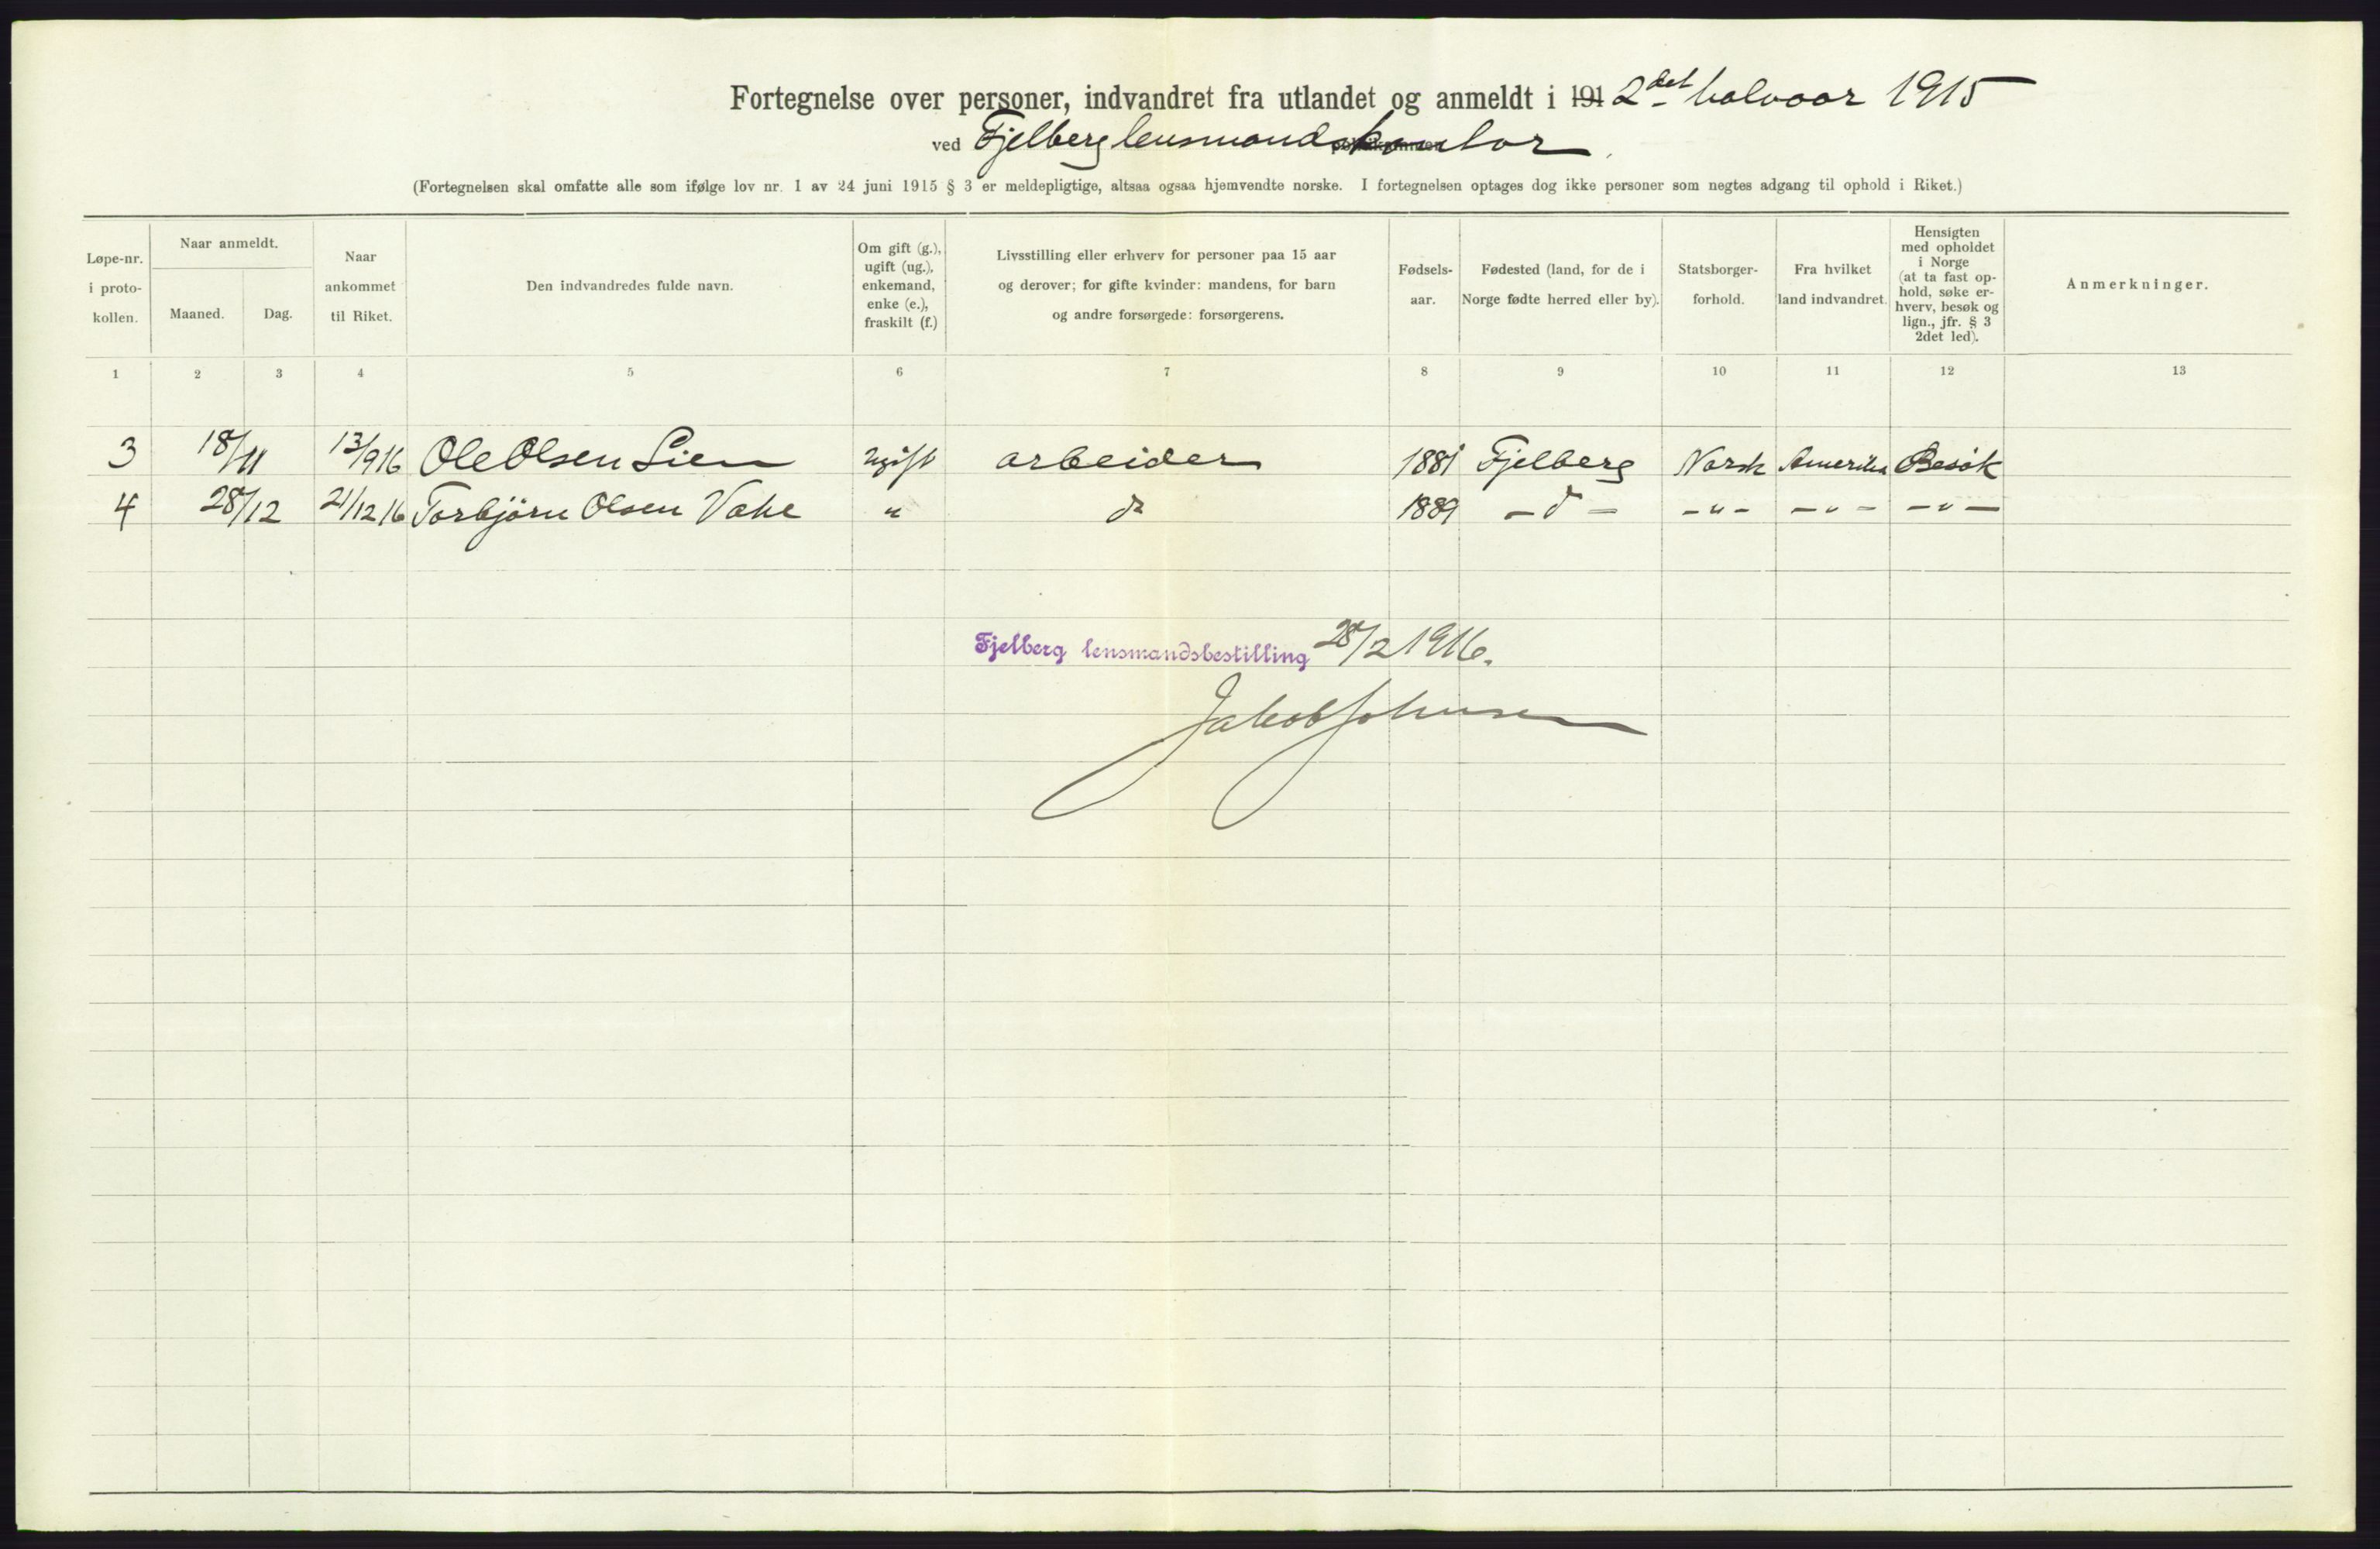 Fortegnelse over personer, indvandret fra utlandet og anmeldt i 191 2det halvaar 1915
ved Fjelberg lensmandskontor
(Fortegnelsen skal omfatte alle som ifølge lov nr. 1 av 24 juni 1915 § 3 er meldepligtige, altsaa ogsaa hjemvendte norske. I fortegnelsen optages dog ikke personer som negtes adgang til ophold i Riket.)
Løpe-nr.
i proto-
kollen.
Naar anmeldt.
Maaned.
Dag.
Naar
ankommet
til Riket.
Den indvandredes fulde navn.
Om gift (g.),
ugift (ug.),
enkemand,
enke (e.),
fraskilt (f.)
Livsstilling eller erhverv for personer paa 15 aar
og derover; for gifte kvinder: mandens, for barn
og andre forsørgede: forsørgerens.
Fødsels-
aar.
Fødested (land, for de i
Norge fødte herred eller by).
Statsborger-
forhold.
Fra hvilket
land indvandret.
Hensigten
med opholdet
i Norge
(at ta fast op-
hold, søke er-
hverv, besøk og
lign., jfr. § 3
2det led).
Anmerkninger.
1 2 3 4 5 6 7 8 9 10 11 12 13
3 18/11 13/916 Ole Olsen Lien ugift arbeider 1881 Fjelberg Norsk Amerika Besøk
4 28/12 21/12 16 Torbjörn Olsen Vake " do 1889 - d - - " - - " - - " -
Fjelberg lensmandsbestilling 28/2 1916.
Jakob Johnsen